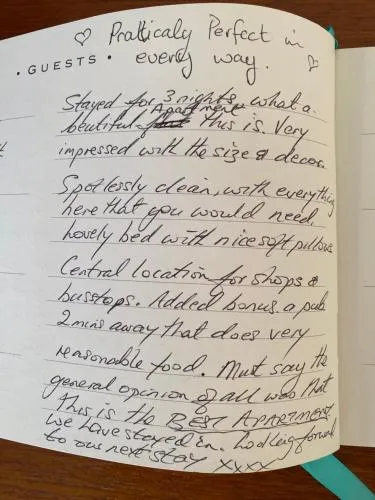 ♡ Pratticaly Perfect in
• GUESTS • everey way. ♡
Stayed for 3 nights, what a
beutiful Apartment this is. Very
impressed with the size & decor.
Spotlessly clean, with everything
here that you would need,
Lovely bed with nice soft pillows
Central location for shops &
busstops. Added bonus a pub
2 mins away that does very
reasonable food. Must say the
general opinion of all was that
this is the BEST APARTMENT
we have stayed in. Looking forward
to our next stay xxxx